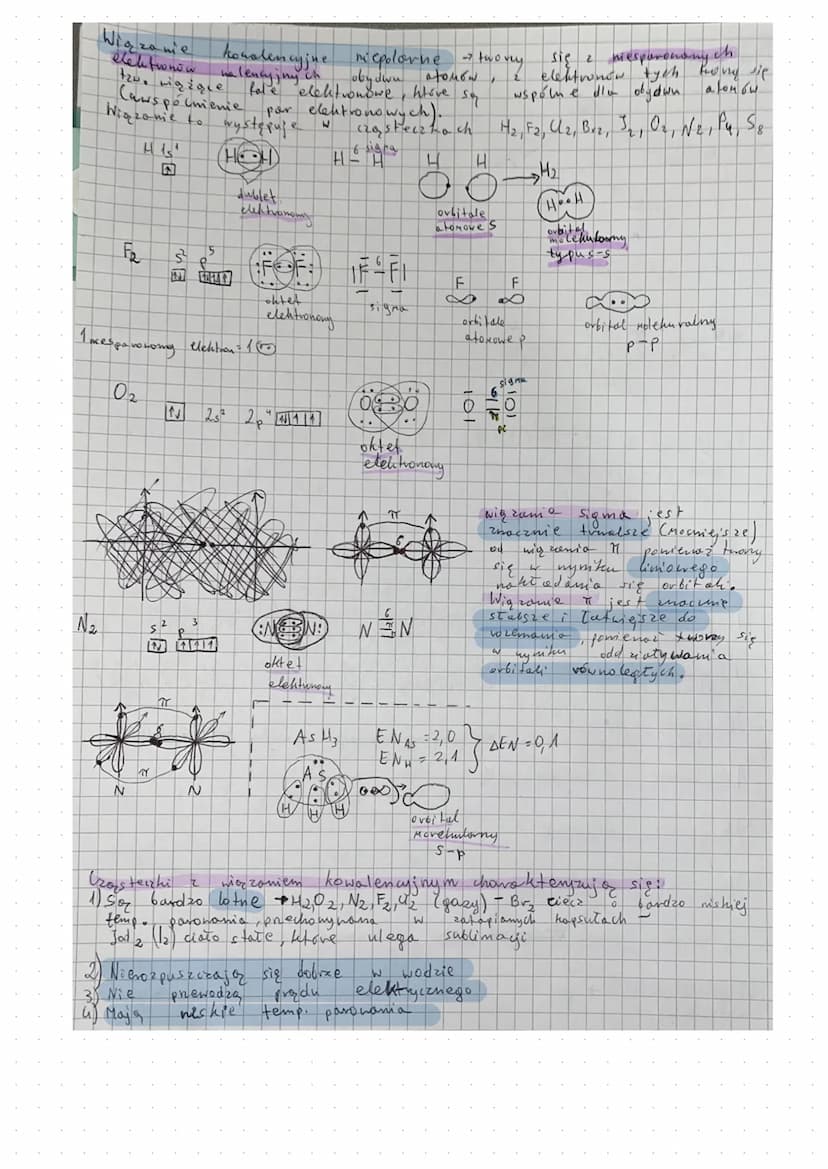 Wiązanie kowalencyjne niepolarne → tworzy się z niesparowanych
elektronów walencyjnych obydwu atomów, z elektronów tych tworzy się
tzw. wiążące pole elektronowe, które są wspólne dla obydwu atomów
(uwspólnienie par elektronowych).
Wiązanie to występuje w cząsteczkach H2, F2, Cl2, Br2, I2, O2, N2, P4, S8
H 1s1
H H
H 6 H
sigma
H H
H2
H H
dublet
elektronowy
orbitale
atomowe S
orbital
molekularny
typu s-s
F2 s2 p5
F F
|F 6 F|
sigma
oktet
elektronowy
F F
orbitale
atomowe p
orbital molekuralny
p-p
1 niesparowany elektron = 1
O2 2s2 2p4
O O
O 6 O
sigma
π
pi
oktet
elektronowy
π
6
wiązania sigma jest
znacznie trwalsze (mocniejsze)
od wiązania π ponieważ tworzy
się w wyniku liniowego
nakładania się orbitali.
Wiązanie π jest znacznie
słabsze i łatwiejsze do
rozerwania, ponieważ tworzy się
w wyniku oddziaływania
orbitali równoległych.
N2 s2 p3
:N N:
N 6 π N
oktet
elektronowy
π
6
π
N N
AsH3 ENAs = 2,0
ENH = 2,1
ΔEN = 0,1
As
H H H
orbital
s-p
Cząsteczki z wiązaniem kowalencyjnym charakteryzują się:
1) Są bardzo lotne → H2, O2, N2, F2, Cl2 (gazy) - Br2 ciecz o bardzo niskiej
temp. parowania, przechowywana w zatapianych kapsułach -
Jod2 (I2) ciało stałe, które ulega sublimacji
2) Nierozpuszczają się dobrze w wodzie
3) Nie przewodzą prądu elektrycznego
4) Mają niskie temp. parowania